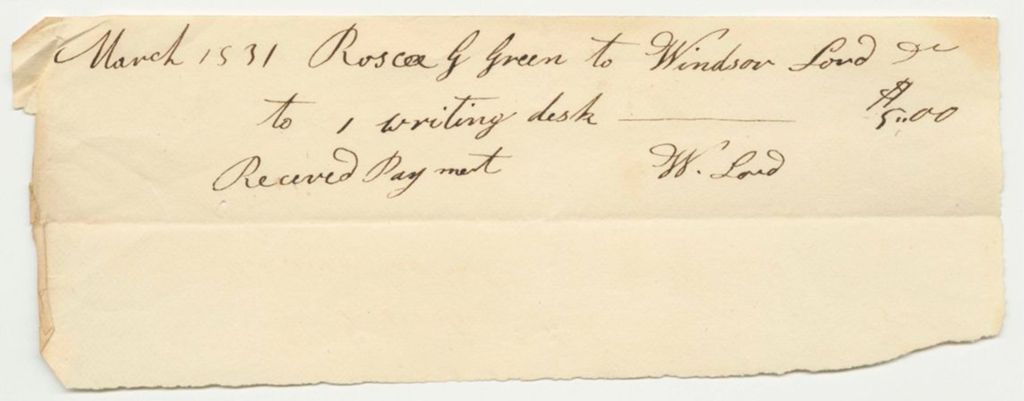 March 1831 Roscoe G Green to Windsor Lord Dr
to 1 writing desk $5.00
Received Payment W. Lord